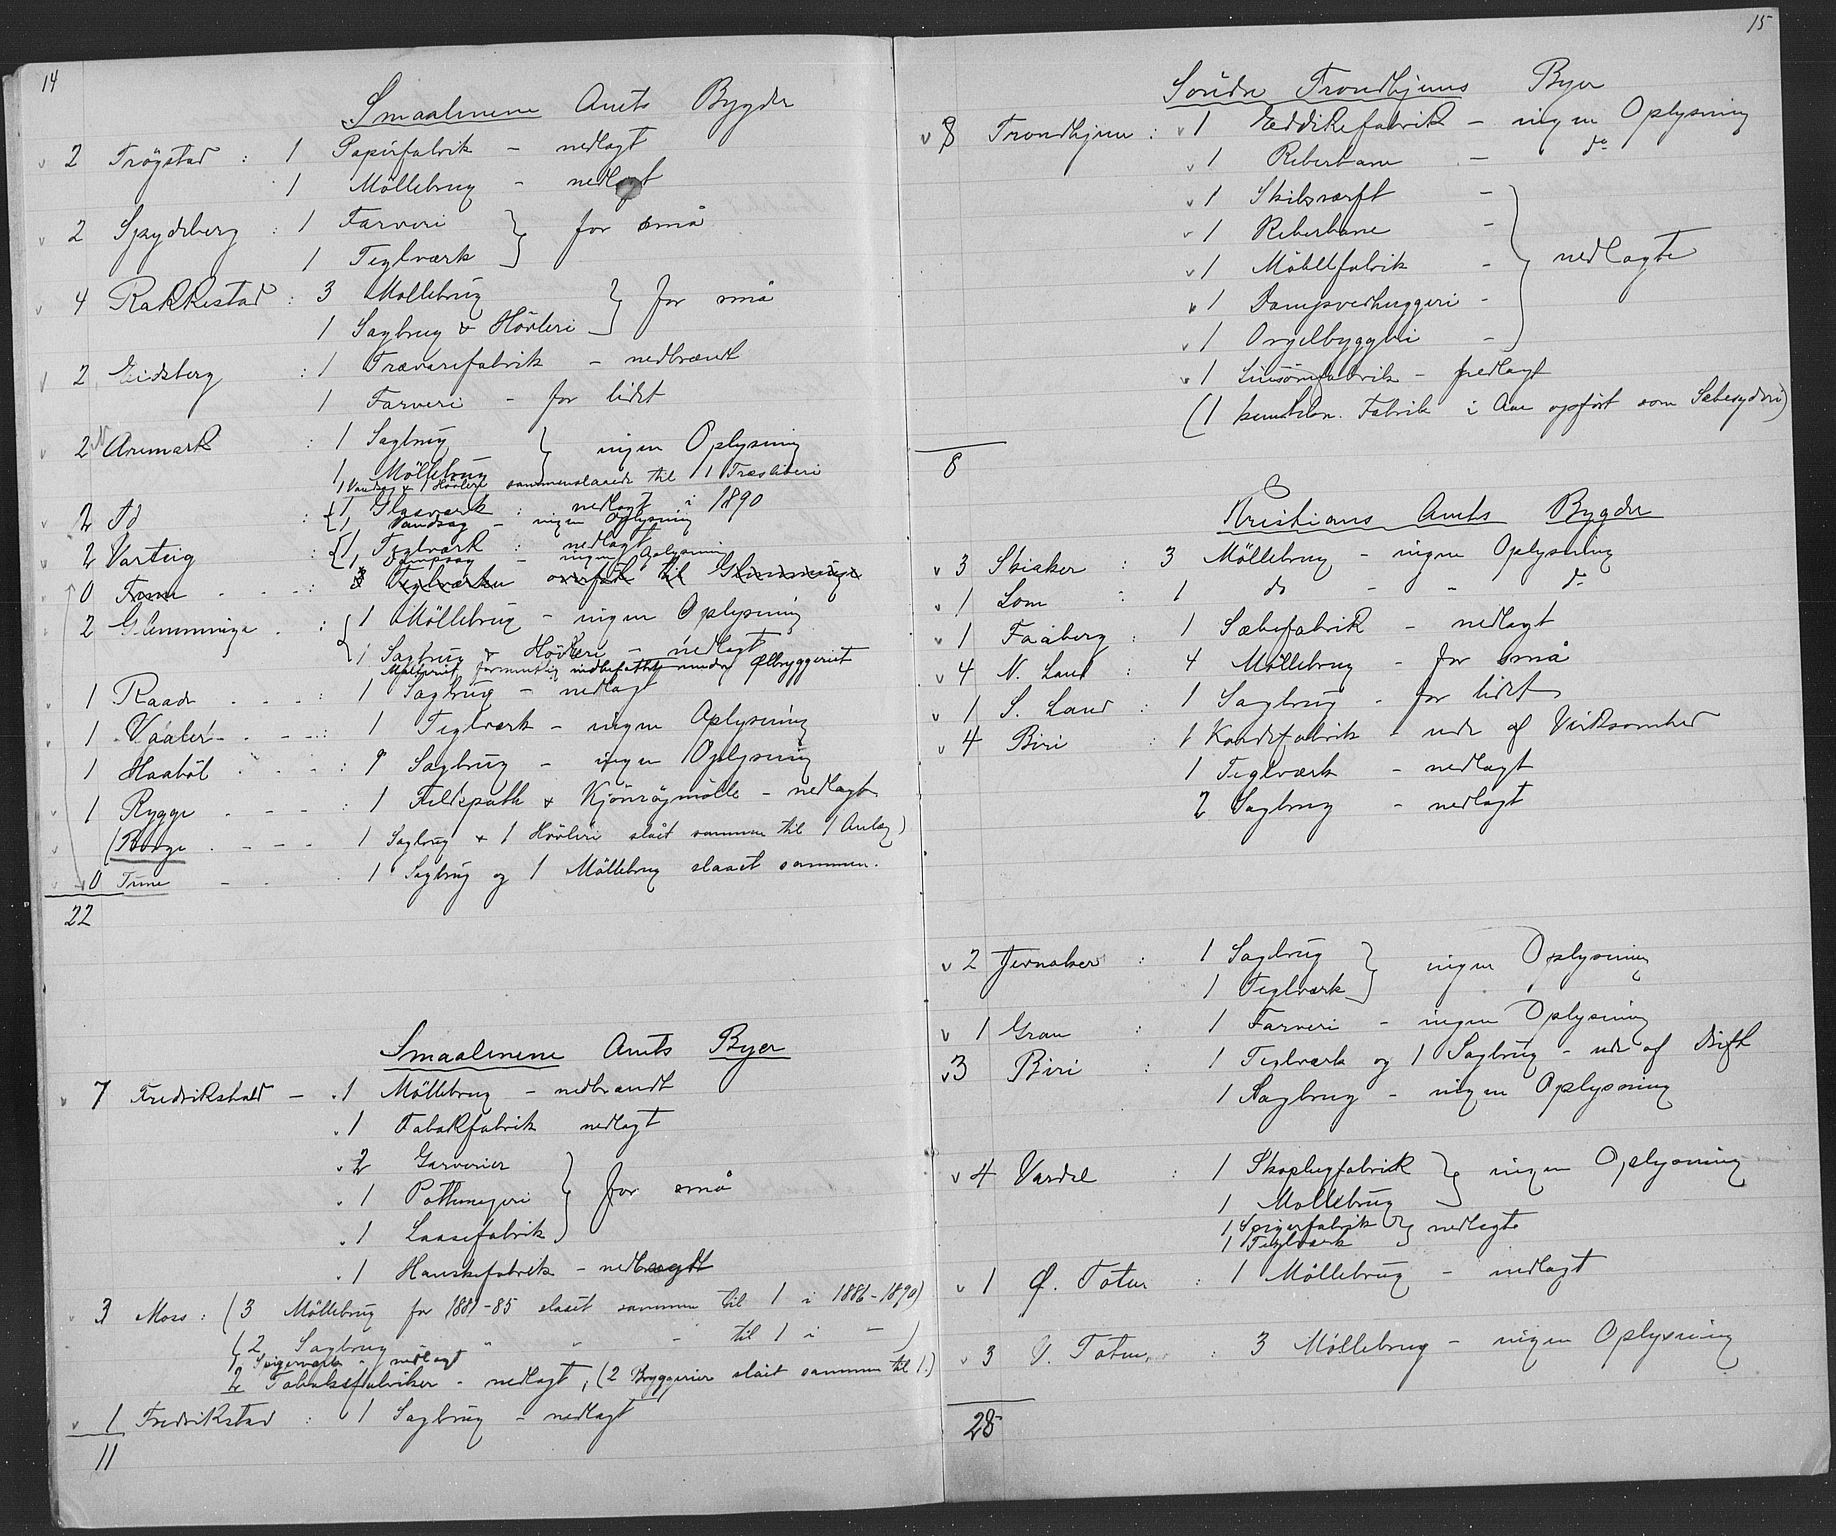 14
Smaalenene Amts Bygder
2 Trögstad : 1 Papirfabrik - nedlagt
1 Möllebrug - nedlagt
2 Spydeberg : 1 Farveri } for små
1 Teglværk
4 Rakkestad : 3 Möllebrug } for små
1 Sagbrug & Hövleri
2 Eidsberg : 1 Trævarefabrik - nedbrændt
1 Farveri - for lidet
2 Aremark : 1 Sagbrug } ingen Oplysning
1 Möllebrug
1 Vandsag & 1 Hövleri sammenslaaede til 1 Træsliberi
2 Id : { 1 Glasværk : nedlagt i 1890
1 Vandsag - ingen Oplysning
2 Varteig : { 1 Teglværk : nedlagt
1 Dampsag - ingen Oplysning
0 Tune - - - : 3 Teglværker overført til Glemminge
2 Glemminge . : { 1 Möllebrug - ingen Oplysning
1 Sagbrug & Hövleri - nedlagt
Malteriet formentlig indbefattet under Ølbryggeriet
1 Raade . . . : 1 Sagbrug - nedlagt
1 Vaaler - . - - : 1 Teglværk - ingen Oplysning
1 Haaböl . - - - : 1 Sagbrug - ingen Oplysning
1 Rygge - - - : 1 Feldspath & Kjönrögmölle - nedlagt
(Borge . - - - 1 Sagbrug & 1 Hövleri slåit sammen til 1 Anlæg)
0 Tune - - 1 Sagbrug og 1 Möllebrug slaaet sammen.
22
Smaalenene Amts Byer
7 Fredrikshald - 1 Möllebrug - nedbrændt
1 Tobakfabrik nedlagt
2 Garverier } for små
1 Pottemageri
1 Laasefabrik
1 Hanskefabrik - nedlagt
3 Moss : (3 Möllebrug for 1881-85 slaaet sammen til 1 i 1886-1890)
(2 Sagbrug " " - til 1 i - )
1 Spigerværk - nedlagt
2 Tobaksfabriker - nedlagt, (2 Bryggerier slåit sammen til 1.)
1 Fredrikstad : 1 Sagbrug - nedlagt
11
15
Söndre Trondhjems Byer
8 Trondhjem : 1 Eddikefabrik - ingen Oplysning
1 Reberbane - do
1 Skibsværft -
1 Reberbane -
1 Möbelfabrik - } nedlagte
1 Dampvedhuggeri -
1 Orgelbyggeri -
1 fabrik - nedlagt
(1 Fabrik i Aar opført som Sæbesyderi)
8
Kristians Amts Bygder
3 Skiaker : 3 Möllebrug - ingen Oplysning
1 Lom : 1 do - - do
1 Faaberg : 1 Sæbefabrik - nedlagt
4 N. Land : 4 Möllebrug - for små
1 S. Land : 1 Sagbrug - for lidet
4 Biri : 1 Kardefabrik - ude af Virksomhed
1 Teglværk - nedlagt
2 Sagbrug - nedlagt
2 Jevnaker : 1 Sagbrug } ingen Oplysning
1 Teglværk
1 Gran : 1 Farveri - ingen Oplysning
3 Biri : 1 Teglværk og 1 Sagbrug - ude af Drift
1 Sagbrug - ingen Oplysning
4 Vardal : 1 Skoplugfabrik } ingen Oplysning
1 Möllebrug
1 Spigerfabrik } nedlagte
1 Teglværk
1 Ø. Toten : 1 Möllebrug - nedlagt
3 V. Toten : 3 Möllebrug - ingen Oplysning
28